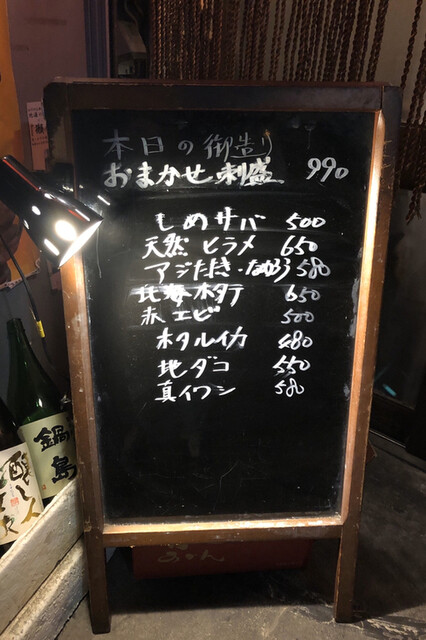 本日の御造り
おまかせ刺盛 990
しめサバ 500
天然ヒラメ 650
アジたたき・なめろう 580
北海ホタテ 650
赤エビ 500
ホタルイカ 480
地ダコ 550
真イワシ 580
鍋島
醸し人